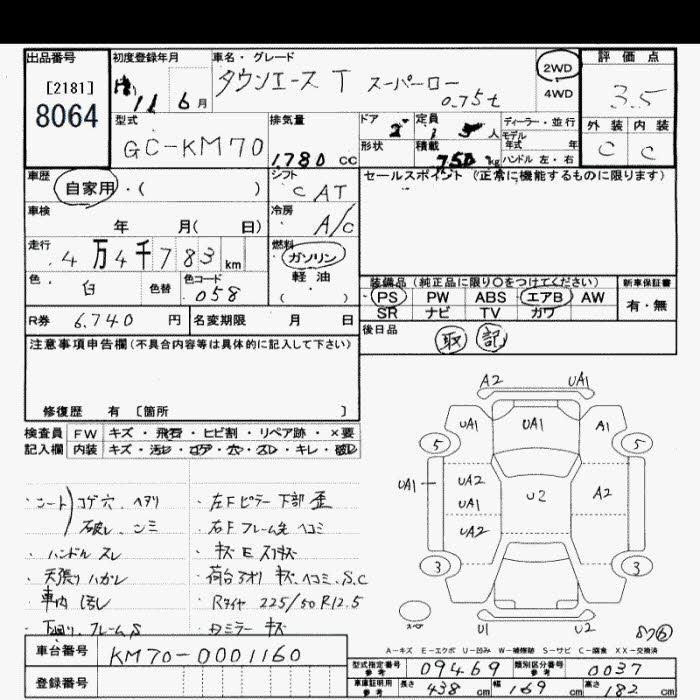 出品番号
[2181]
8064
初度登録年月
11 6 月
車名・グレード
タウンエース T スーパーロー
0.75t
2WD
4WD
評価点
3.5
外装 内装
C C
型式
GC-KM70
排気量
1.780 cc
ドア 2
定員
人
ディーラー・並行
モデル
年式 年
形状
積載
750 kg
ハンドル 左・右
車歴
自家用・( )
シフト
C AT
セールスポイント (正常に機能するものに限ります)
車検
年 月( 日)
冷房
A/C
走行
4万4千783 km
燃料
ガソリン
軽油
( )
色
白
色替
色コード
058
装備品(純正品に限り○をつけてください)
PS PW ABS エアB AW
SR ナビ TV カワ
新車保証書
有・無
R券 6.740 円
名変期限 月 日
後日品
取 記
注意事項申告欄(不具合内容等は具体的に記入して下さい)
修復歴 有 [箇所 ]
検査員
記入欄
FW キズ・飛石・ヒビ割・リペア跡・×要
内装 キズ・汚レ・コゲ・穴・スレ・キレ・破レ
シート コゲ穴.ヘタリ
破レ.シミ
・ハンドル スレ
・天張りハガレ
・車内 汚レ
下廻り.フレームS
・左Fピラー下部 歪
・右Fフレーム先 ヘコミ
・荷台アオリ キズ.ヘコミ.S.C
・Rタイヤ 225/50R12.5
・ミラー キズ
A2 UA1
UA1 UA1 A1
5 5
UA1
UA2
UA1
UA2
U2
A2
3 3
U1 U2
A-キズ E-エクボ U-凹み W-補修跡 S-サビ C-腐食 XX-交換済
車台番号 KM70-0001160
登録番号
型式指定番号
参考
09469
類別区分番号
参考
0037
車庫証明用
参考
長さ 438 cm 幅 169 cm 高さ 182 cm